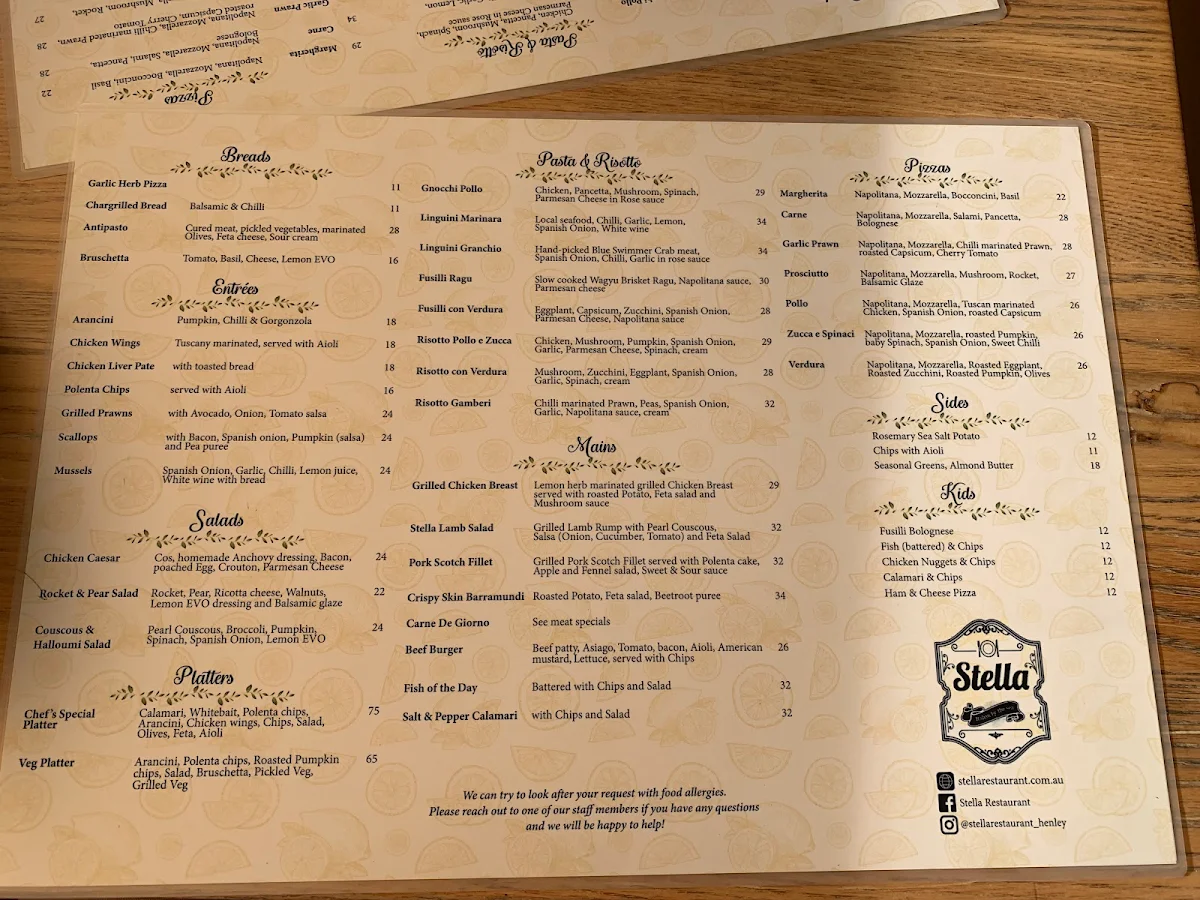 Napolitana, Mozzarella, Chilli marinated Prawn, 28
roasted Capsicum, Cherry Tomato
Garlic Prawn
27
Napolitana, Mozzarella, Salami, Pancetta, 28
Bolognese
Carne
34
Napolitana, Mozzarella, Bocconcini, Basil 22
Margherita
29
Pizzas
Chicken, Pancetta, Mushroom, Spinach,
Parmesan Cheese in Rose sauce
Pasta & Risotto
Breads
Garlic Herb Pizza 11
Chargrilled Bread Balsamic & Chilli 11
Antipasto Cured meat, pickled vegetables, marinated 28
Olives, Feta cheese, Sour cream
Bruschetta Tomato, Basil, Cheese, Lemon EVO 16
Entrées
Arancini Pumpkin, Chilli & Gorgonzola 18
Chicken Wings Tuscany marinated, served with Aioli 18
Chicken Liver Pate with toasted bread 18
Polenta Chips served with Aioli 16
Grilled Prawns with Avocado, Onion, Tomato salsa 24
Scallops with Bacon, Spanish onion, Pumpkin (salsa) 24
and Pea puree
Mussels Spanish Onion, Garlic, Chilli, Lemon juice, 24
White wine with bread
Salads
Chicken Caesar Cos, homemade Anchovy dressing, Bacon, 24
poached Egg, Crouton, Parmesan Cheese
Rocket & Pear Salad Rocket, Pear, Ricotta cheese, Walnuts, 22
Lemon EVO dressing and Balsamic glaze
Couscous & Pearl Couscous, Broccoli, Pumpkin, 24
Halloumi Salad Spinach, Spanish Onion, Lemon EVO
Platters
Chef's Special Calamari, Whitebait, Polenta chips, 75
Platter Arancini, Chicken wings, Chips, Salad,
Olives, Feta, Aioli
Veg Platter Arancini, Polenta chips, Roasted Pumpkin 65
chips, Salad, Bruschetta, Pickled Veg,
Grilled Veg
Pasta & Risotto
Gnocchi Pollo Chicken, Pancetta, Mushroom, Spinach, 29
Parmesan Cheese in Rose sauce
Linguini Marinara Local seafood, Chilli, Garlic, Lemon, 34
Spanish Onion, White wine
Linguini Granchio Hand-picked Blue Swimmer Crab meat, 34
Spanish Onion, Chilli, Garlic in rose sauce
Fusilli Ragu Slow cooked Wagyu Brisket Ragu, Napolitana sauce, 30
Parmesan cheese
Fusilli con Verdura Eggplant, Capsicum, Zucchini, Spanish Onion, 28
Parmesan Cheese, Napolitana sauce
Risotto Pollo e Zucca Chicken, Mushroom, Pumpkin, Spanish Onion, 29
Garlic, Parmesan Cheese, Spinach, cream
Risotto con Verdura Mushroom, Zucchini, Eggplant, Spanish Onion, 28
Garlic, Spinach, cream
Risotto Gamberi Chilli marinated Prawn, Peas, Spanish Onion, 32
Garlic, Napolitana sauce, cream
Mains
Grilled Chicken Breast Lemon herb marinated grilled Chicken Breast 29
served with roasted Potato, Feta salad and
Mushroom sauce
Stella Lamb Salad Grilled Lamb Rump with Pearl Couscous, 32
Salsa (Onion, Cucumber, Tomato) and Feta Salad
Pork Scotch Fillet Grilled Pork Scotch Fillet served with Polenta cake, 32
Apple and Fennel salad, Sweet & Sour sauce
Crispy Skin Barramundi Roasted Potato, Feta salad, Beetroot puree 34
Carne De Giorno See meat specials
Beef Burger Beef patty, Asiago, Tomato, bacon, Aioli, American 26
mustard, Lettuce, served with Chips
Fish of the Day Battered with Chips and Salad 32
Salt & Pepper Calamari with Chips and Salad 32
We can try to look after your request with food allergies.
Please reach out to one of our staff members if you have any questions
and we will be happy to help!
Pizzas
Margherita Napolitana, Mozzarella, Bocconcini, Basil 22
Carne Napolitana, Mozzarella, Salami, Pancetta, 28
Bolognese
Garlic Prawn Napolitana, Mozzarella, Chilli marinated Prawn, 28
roasted Capsicum, Cherry Tomato
Prosciutto Napolitana, Mozzarella, Mushroom, Rocket, 27
Balsamic Glaze
Pollo Napolitana, Mozzarella, Tuscan marinated 26
Chicken, Spanish Onion, roasted Capsicum
Zucca e Spinaci Napolitana, Mozzarella, roasted Pumpkin, 26
baby Spinach, Spanish Onion, Sweet Chilli
Verdura Napolitana, Mozzarella, Roasted Eggplant, 26
Roasted Zucchini, Roasted Pumpkin, Olives
Sides
Rosemary Sea Salt Potato 12
Chips with Aioli 11
Seasonal Greens, Almond Butter 18
Kids
Fusilli Bolognese 12
Fish (battered) & Chips 12
Chicken Nuggets & Chips 12
Calamari & Chips 12
Ham & Cheese Pizza 12
Stella
stellarestaurant.com.au
Stella Restaurant
@stellarestaurant_henley